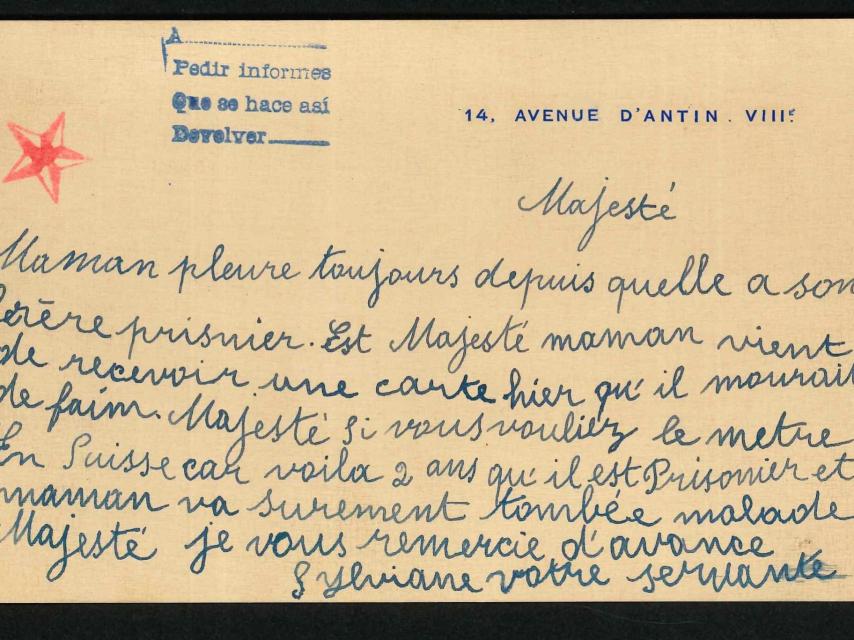 A
Pedir informes
Que se hace así
Devolver
14, AVENUE D'ANTIN. VIIIᵉ
Majesté
Maman pleure toujours depuis quelle a son
frère prisnier. Est Majesté maman vient
de recevoir une carte hier qu'il mourait
de faim. Majesté si vous vouliez le metre
En Suisse car voila 2 ans qu'il est Prisonier et
maman va surement tombée malade
Majesté je vous remercie d'avance
Sylviane votre servante